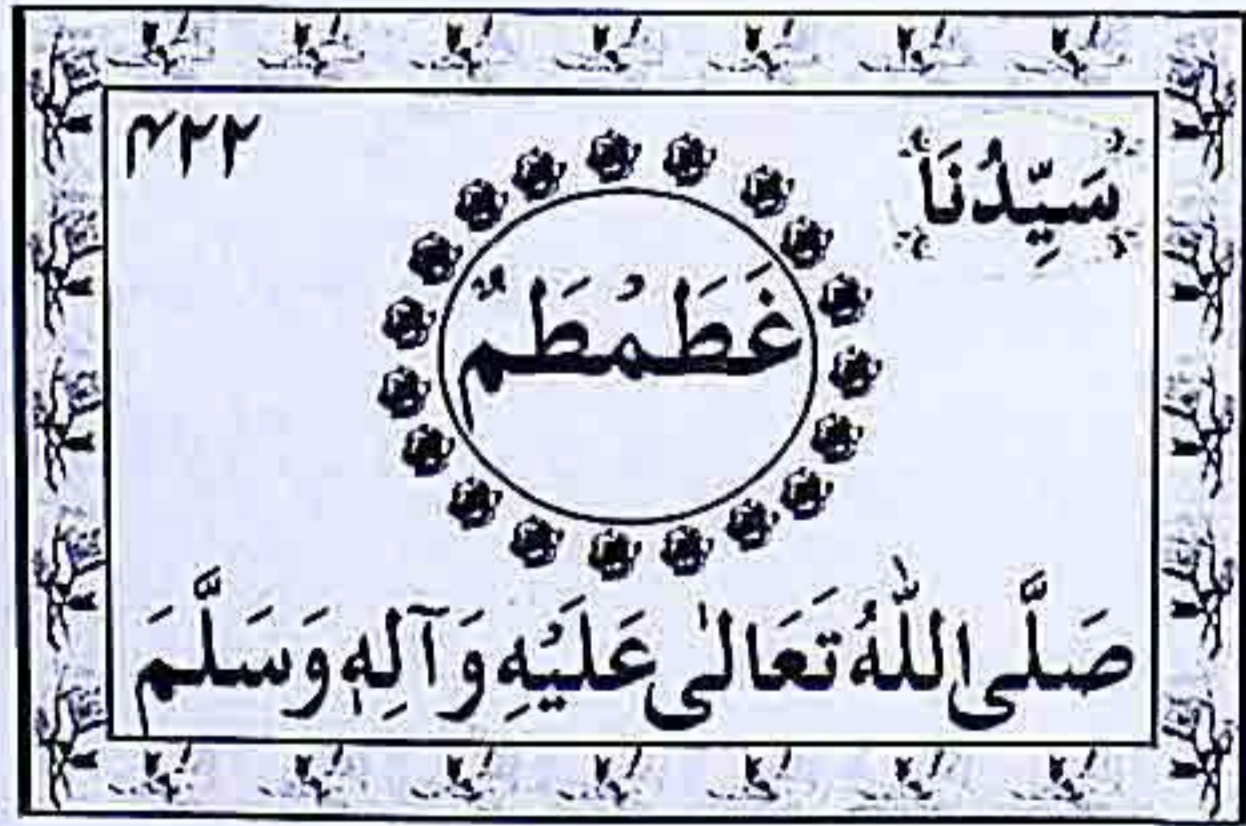 سَيِّدُنَا
۴۲۲
غَطَمْطَمٌ
صَلَّى اللّٰهُ تَعَالٰى عَلَيْهِ وَآلِهٖ وَسَلَّمَ